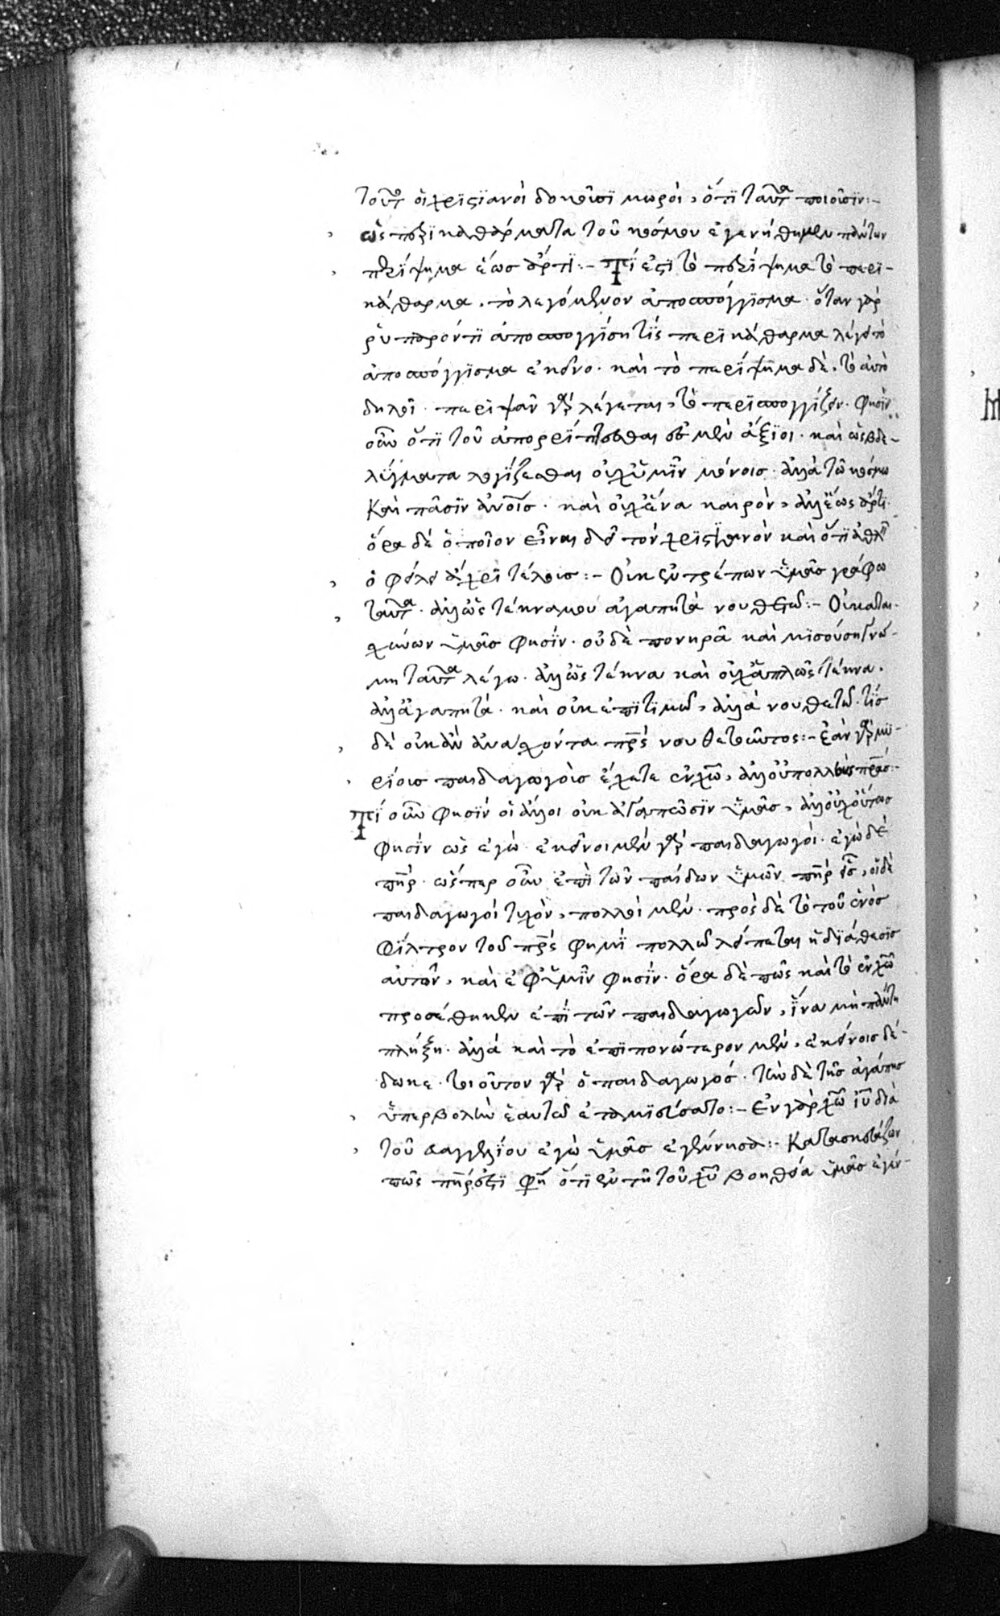 τοῦτο οἱ χριστιανοὶ δοκοῦσι μωροὶ, ὅτι ταῦτα ποιοῦσιν:–
ὡς περικαθάρματα τοῦ κόσμου ἐγενήθημεν πάντων
περίψημα ἕως ἄρτι:– Τί ἐστι τὸ περίψημα τὸ περι-
κάθαρμα. τὸ λεγόμενον ἀποσπόγγισμα. ὅταν γὰρ
ῥυπαρόν τι ἀποσπογγίσῃ τίς περικάθαρμα λέγει τὸ
ἀποσπόγγισμα ἐκεῖνο. καὶ τὸ περίψημα δὲ, τὸ αὐτὸ
δηλοῖ. περιψᾶν γὰρ λέγεται, τὸ περισπογγίζειν. φησὶν
οὖν ὅτι τοῦ ἀπορρίπτεσθαι ἐσμὲν ἄξιοι. καὶ ὡς βδε-
λύγματα λογίζεσθαι οὐχ ὑμῖν μόνοις. ἀλλὰ τῶ κόσμω
καὶ πᾶσιν ἀνοις. καὶ οὐχ ἕνα καιρὸν, ἀλλ' ἕως ἄρτι.
ὅρα δὲ ὁποῖον εἶναι δεῖ τὸν χριστιανὸν καὶ ὅτι
ὀφείλει ἄχρι τέλους:– Οὐκ ἐντρέπων ὑμᾶς γράφω
ταῦτα. ἀλλ' ὡς τέκνα μου ἀγαπητὰ νουθετῶ:– Οὐ καται-
σχύνων ὑμᾶς φησίν. οὐδὲ πονηρᾶ καὶ μισούση γνώ-
μη ταῦτα λέγω. ἀλλ' ὡς τέκνα καὶ οὐχ ἁπλῶς τέκνα.
ἀλλ' ἀγαπητά. καὶ οὐκ ἐπιτιμῶ, ἀλλὰ νουθετῶ. τίς
δὲ οὐκ ἂν ἀνάσχοιτο πρς νουθετοῦντος:– Ἐὰν γὰρ μυ-
ρίους παιδαγωγοὺς ἔχητε ἐν χω, ἀλλ' οὐ πολλοὺς πρας:–
Τί οὖν φησὶν οἱ ἄλλοι οὐκ ἀγαπῶσιν ὑμᾶς, ἀλλ' οὐχ οὕτως
φησὶν ὡς ἐγώ. ἐκεῖνοι μὲν γὰρ παιδαγωγοί. ἐγὼ δὲ
πηρ. ὥσπερ οὖν ἐπὶ τῶν παίδων ὑμῶν πηρ εἷς, οἱ δὲ
παιδαγωγοὶ τυχὸν, πολλοὶ μέν. πρὸς δὲ τὸ τοῦ ἑνὸς
φίλτρον τοῦ πρς φημὶ πολλῶ λείπεται ἡ διάθεσις
αὐτῶν, καὶ ἐφ' ὑμῖν φησίν. ὅρα δὲ πῶς καὶ τὸ ἐν χω
προσέθηκεν ἐπὶ τῶν παιδαγωγῶν, ἵνα μὴ πάντη
πλήξη. ἀλλὰ καὶ τὸ ἐπιπονώτερον μὲν, ἐκείνοις δέ-
δωκε. τοιοῦτον γὰρ ὁ παιδαγωγός. τὴν δὲ τῆς ἀγάπης
ὑπερβολὴν ἑαυτῶ ἐταμιεύσατο:– Ἐν γὰρ χω ιυ διὰ
τοῦ εὐαγγελίου ἐγὼ ὑμᾶς ἐγέννησα:– Κατασκευάζων
πῶς πηρ ἐστι φησὶν ὅτι ἐν τῆ τοῦ χυ βοηθεία ὑμᾶς ἐγέν-